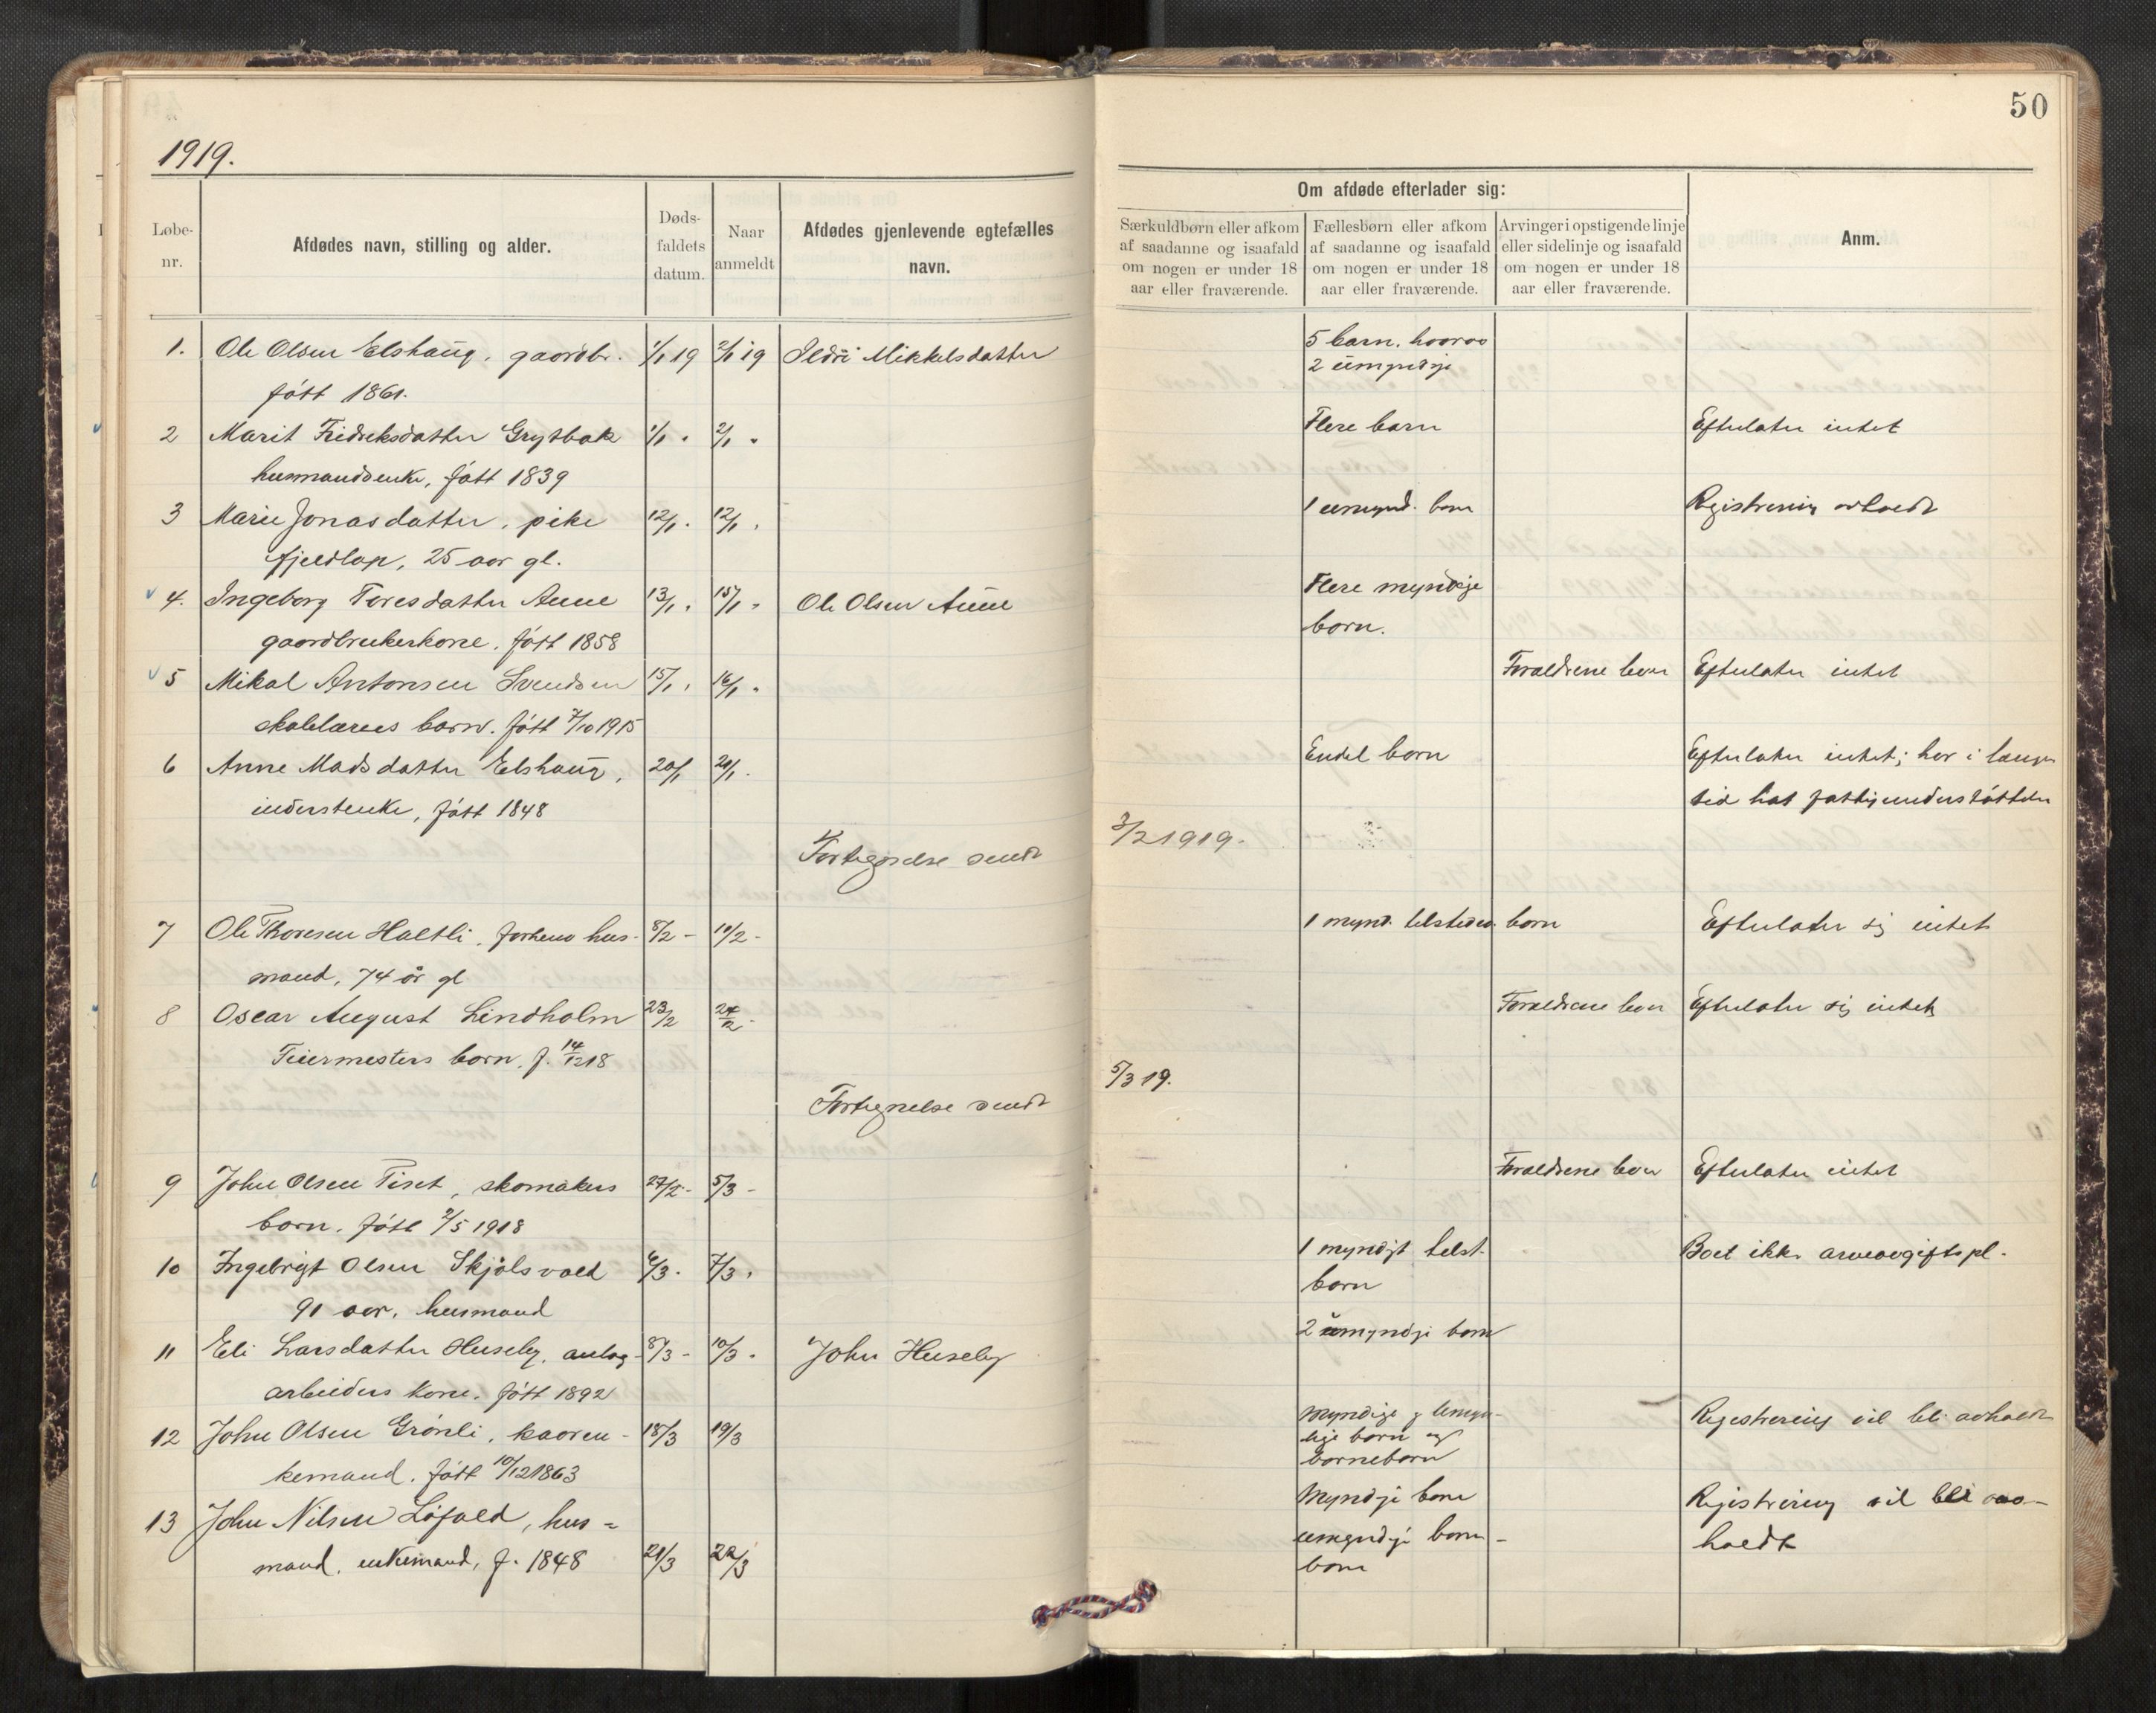 50
1919.
Løbe-
nr.
Afdødes navn, stilling og alder.
Døds-
faldets
datum.
Naar
anmeldt
Afdødes gjenlevende egtefælles
navn.
Om afdøde efterlader sig:
Særkuldbørn eller afkom
af saadanne og isaafald
om nogen er under 18
aar eller fraværende.
Fællesbørn eller afkom
af saadanne og isaafald
om nogen er under 18
aar eller fraværende.
Arvinger i opstigende linje
eller sidelinje og isaafald
om nogen er under 18
aar eller fraværende.
Anm.
1. Ole Olsen Elshaug, gaardbr. 1/1 19 2/1 19 Ildri Mikkelsdatter 5 barn, hvorav
født 1861. 2 umyndige
2 Marit Fridriksdatter Grytbak 1/1 " 2/1 " Flere barn Efterlater intet
husmandsenke, født 1839
3 Marie Jonasdatter, pike 12/1 " 12/1 " 1 umynd. barn Registrering avholdt
fjeldlap, 25 aar gl.
4. Ingeborg Toresdatter Aune 13/1 " 15/1 " Ole Olsen Aune Flere myndige
gaardbrukerkone, født 1858 barn.
5 Mikal Antonsen Svendsen 15/1 " 16/1 " Forældrene lever Efterlater intet
skolelærers barn. født 7/10 1915
6 Anne Madsdatter Elshaug, 20/1 21/1 " Endel barn Efterlater intet; har i længre
inderstenke, født 1848 tid hat fattigunderstøttelse
Fortegnelse sendt 3/2 1919.
7 Ole Thoresen Haltli, forhenv hus- 8/2 - 10/2 - 1 mynd. tilstedev. barn Efterlater sig intet
mand, 74 år gl
8 Oscar August Lindholm 23/2 24/2 - Forældrene lever Efterlater sig intet
Feiermesters barn, f. 14/12 18
Fortegnelse sendt 5/3 19.
9 John Olsen Tiset, skomakers 27/2 - 5/3 - Forældrene lever Efterlater intet
barn. født 2/5 1918
10 Ingebrigt Olsen Skjølsvold 6/3 - 7/3 " 1 myndigt tilst. Boet ikke arveavgiftspl.
90 aar, husmand barn
11 Eli Larsdatter Huseby, anlæg- 8/3 - 10/3 " John Huseby 2 umyndige barn
arbeiders kone. født 1892
12 John Olsen Grønli, kaaren- 18/3 19/3 Myndige og umyn- Registrering vil bli avholdt
kemand. født 10/12 1863 dige barn og
barnebarn
13 John Nilsen Løfald, hus= Myndige barn Registrering vil bli av-
mand, enkemand, f. 1848 21/3 22/3 umyndige barne- holdt
barn